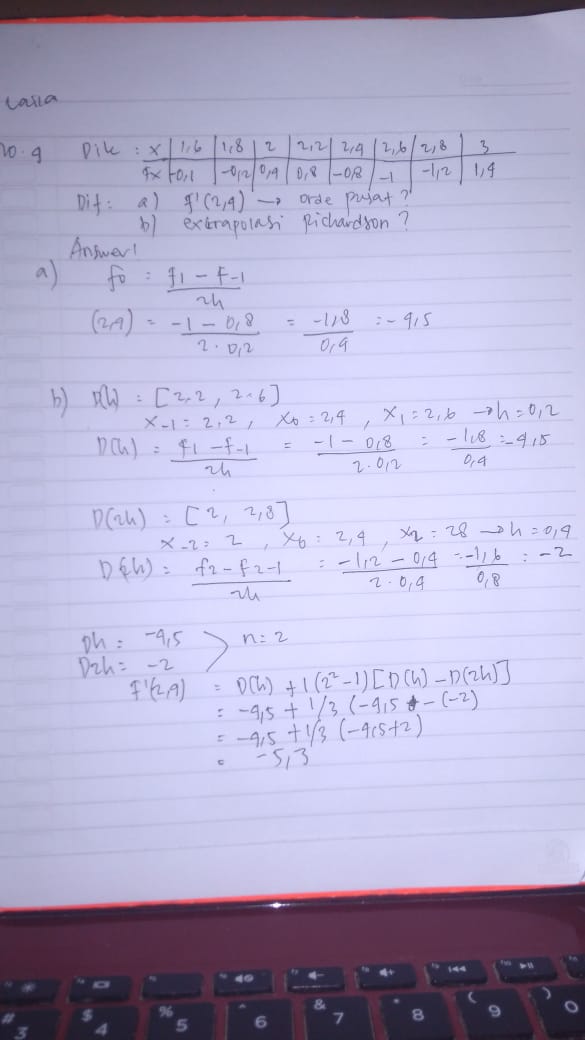 no. 4 Dik : x | 1,6 | 1,8 | 2 | 2,2 | 2,4 | 2,6 | 2,8 | 3
fx | 0,1 | -0,2 | 0,4 | 0,8 | -0,8 | -1 | -1,2 | 1,4
Dit : a) f'(2,4) → orde pusat ?
b) extrapolasi Richardson ?
Answer!
a) fo : f1 - f-1
2h
(2,4) = -1 - 0,8 = -1,8 : - 4,5
2 . 0,2 0,4
b) D(h) : [2.2 , 2.6]
x-1 = 2,2 , x0 = 2,4 , x1 = 2,6 → h = 0,2
D(h) = f1 - f-1 = -1 - 0,8 = -1,8 = -4,5
2h 2.0,2 0,4
D(2h) = [2, 2,8]
x-2 = 2 , x0 : 2,4 , x2 = 28 → h = 0,4
D(h) = f2 - f2-1 = -1,2 - 0,4 = -1,6 : -2
2h 2.0,4 0,8
Dh = -4,5 n = 2
D2h = -2
f'(2,4) = D(h) + 1 (2²-1) [D(h) - D(2h)]
= -4,5 + 1/3 (-4,5 - (-2)
= -4,5 + 1/3 (-4,5+2)
= -5,3
# 3 $ 4 % 5 ^ 6 & 7 * 8 ( 9 ) 0